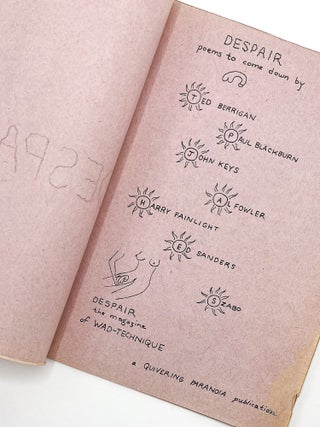 DESPAIR
poems to come down by
TED BERRIGAN
PAUL BLACKBURN
JOHN KEYS
AL FOWLER
HARRY FAINLIGHT
ED SANDERS
SZABO
DESPAIR
the magazine
of WAD-TECHNIQUE
a QUIVERING PARANOIA publication